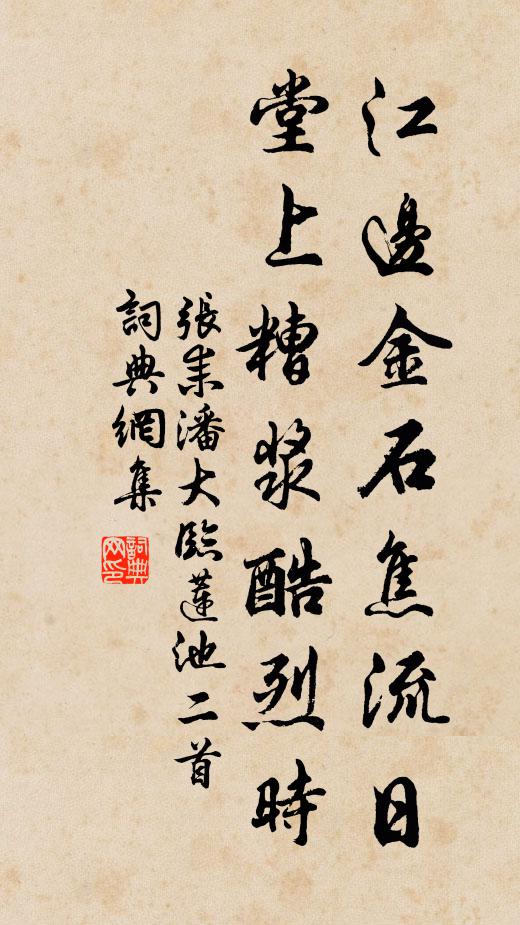 江邊金石焦流日
堂上糟漿酷烈時
張耒潘大臨蓮池二首
詞典網集
詞典
网印